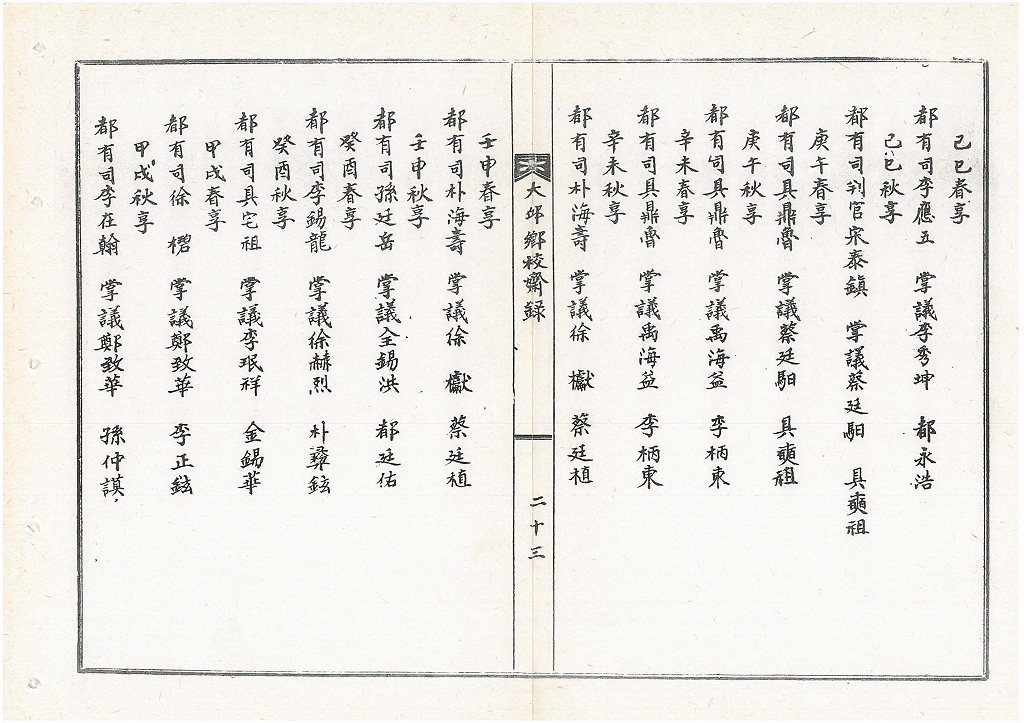 己巳春享
都有司李應五 掌議李秀坤 都永浩
己巳秋享
都有司判官宋泰鎭 掌議蔡廷馹 具奭祖
庚午春享
都有司具鼎魯 掌議蔡廷馹 具奭祖
庚午秋享
都有司具鼎魯 掌議禹海益 李柄東
辛未春享
都有司具鼎魯 掌議禹海益 李柄東
辛未秋享
都有司朴海壽 掌議徐 㰚 蔡廷植
大邱鄉校齋録
二十三
壬申春享
都有司朴海壽 掌議徐 㰚 蔡廷植
壬申秋享
都有司孫廷岳 掌議全錫洪 都廷佑
癸酉春享
都有司李錫龍 掌議徐赫烈 朴彛鉉
癸酉秋享
都有司具宅祖 掌議李珉祥 金錫華
甲戌春享
都有司徐 掌議鄭致華 李正鉉
甲戌秋享
都有司李在翰 掌議鄭致華 孫仲謨